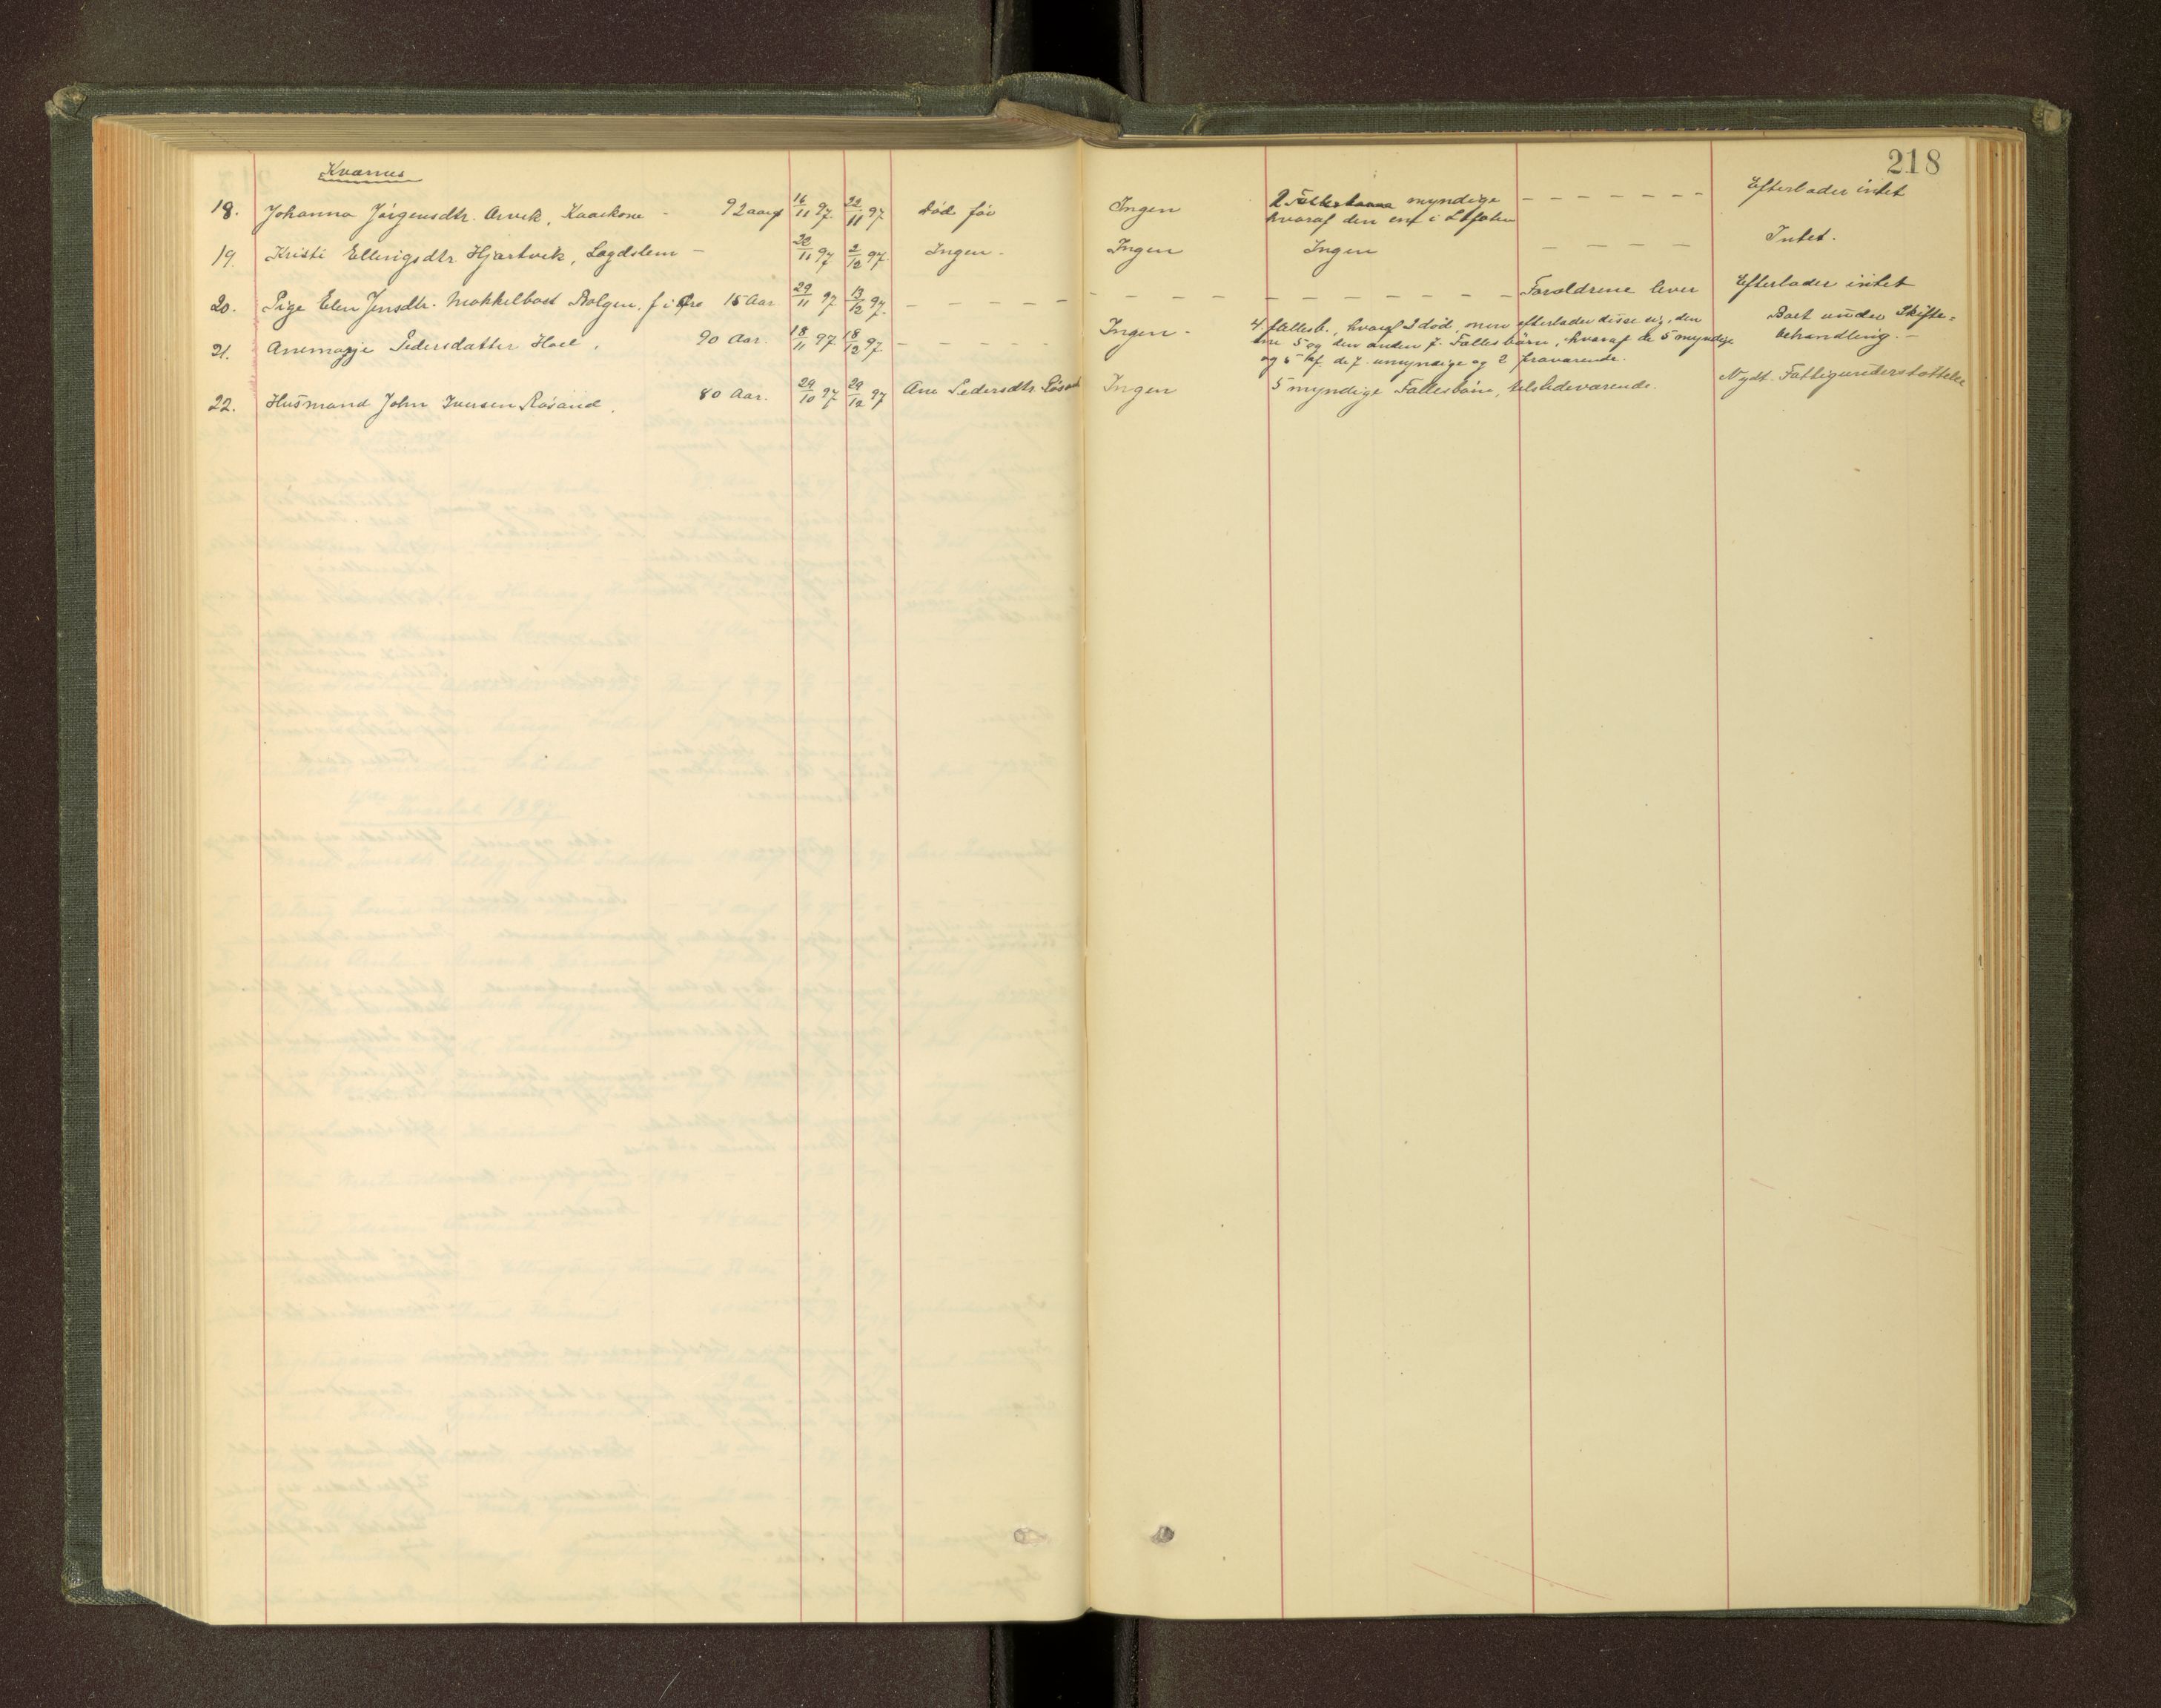 218
Kværnes
18. Johanna Jörgensdtr. Arvik, Kaarkone - 92 aar 16/11 97 22/11 97 död för Ingen 2 Fællesbarn myndige - - - - - - - Efterlader intet
hvoraf den ene i
19. Kristi Ellingsdtr. Hjartvik, Lægdslem - 22/11 97 2/12 97. Ingen. Ingen Ingen - - - - Intet.
20. Pige Elen Jensdtr. Mækkelbost Bolgen. f i 15 Aar 29/11 97 13/12 97. - - - - - Forældrene lever Efterlader intet
21. Anemagje Pedersdatter Hoel, 90 Aar. 18/11 97 18/12 97 - - - - - Ingen - 4 fællesb., hvoraf 2 död, men efterlader disse sig, den Boet under Skifte=
ene 5 og den anden 7 Fællesbörn, hvoraf de 5 myndige behandling. -
og 5 af de 7 umyndige og 2 fraværende.
22. Husmand John Iversen Røsand, 80 Aar. 29/10 97 29/12 97 Ane Pedersdtr. Røsand Ingen 5 myndige Fællesbörn, tilstedeværende. Nydt Fattigunderstøttelse